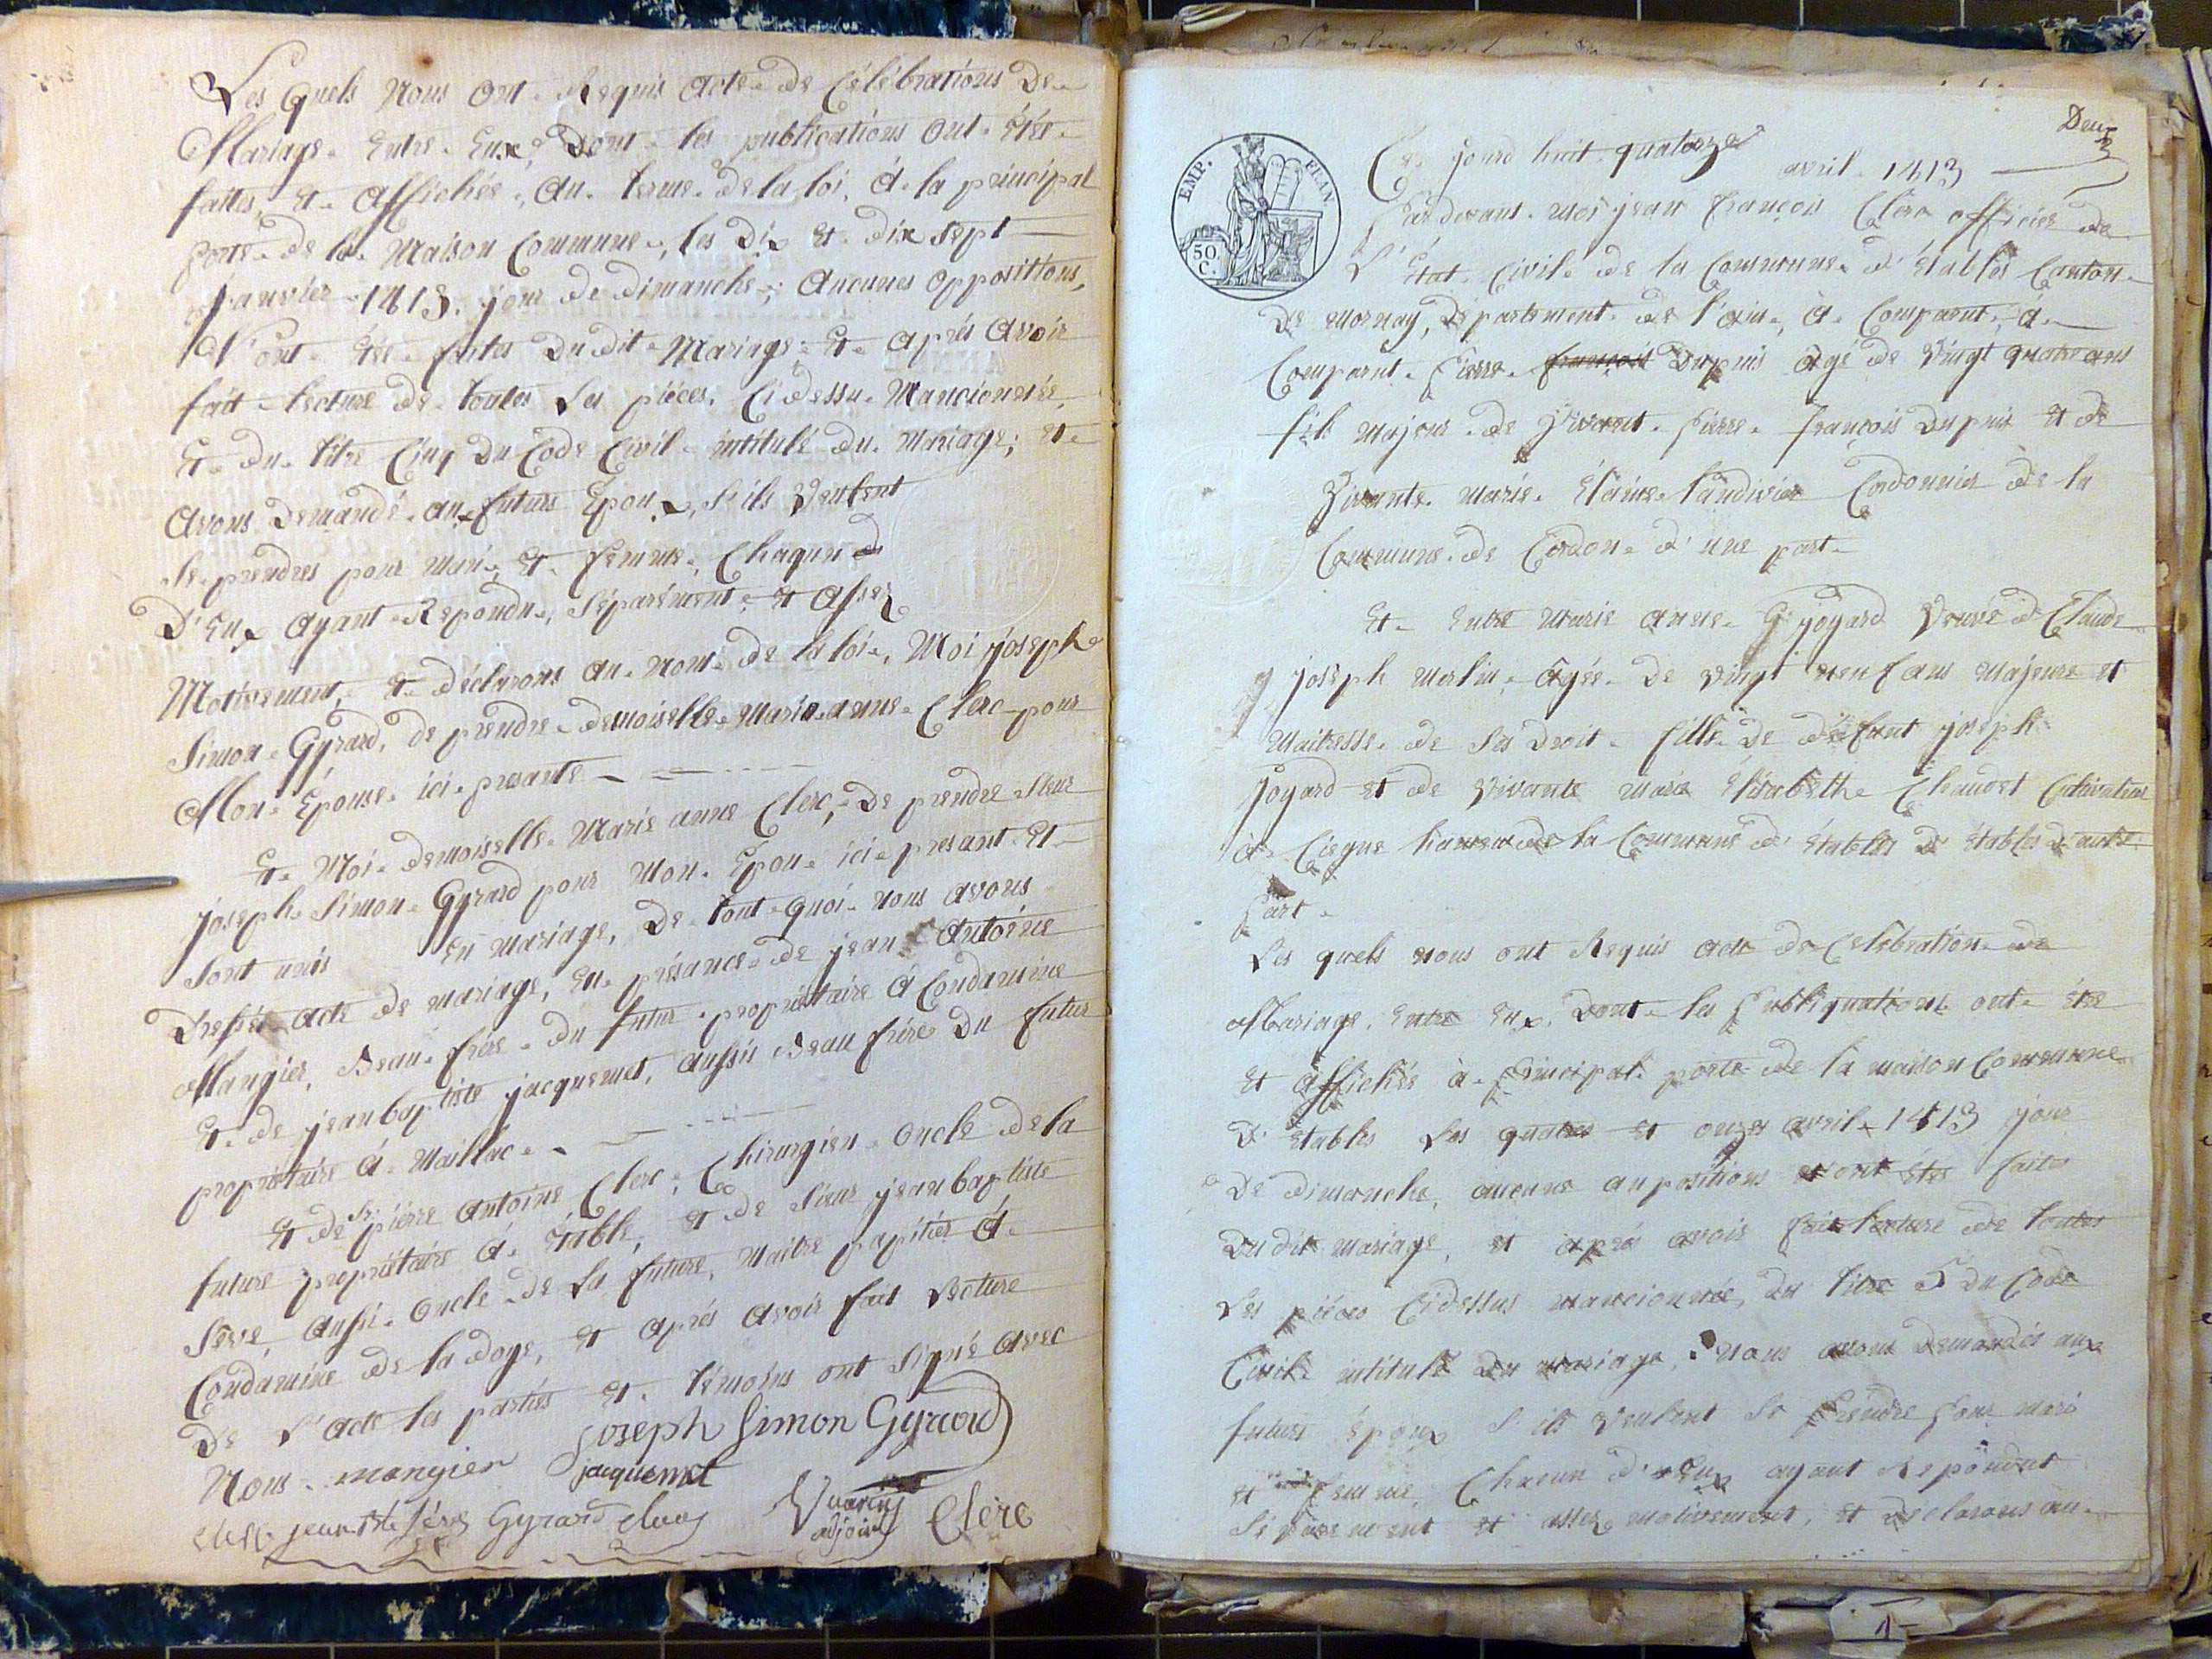 Les quels nous ont Requis acte de Célébrations de
Mariage Entre Eux, dont les publications ont Étée
faites, et Affichée, au terme de la loi, à la principal
porte de la Maison Commune, les dix et dix sept
janvier 1813. jour de dimanche; Aucunes oppositions,
N'ont Étée faites du dit Mariage; et après Avoir
fait lecture de toutes les pièces, Cidessu Mancionnée,
Et du titre Cinq du Code Civil intitulé du Mariage; et
Avons demandé aux futurs Epoux, s'ils Veulent
se prendres pour mari, et femme, Chaqun d
D'Eux ayant Repondu, Séparément, et Assez
Motivement, et déclarons au nom de la loi, Moi joseph
Simon Gyrard, de prendre demoiselle Marie anne Clerc pour
Mon Épouse ici presante
Et Moi demoiselle Marie anne Clerc, de prendre sieur
joseph Simon Gyrard pour Mon Épou ici presant Et
sont unis En mariage, De tout quoi nous avons
dressée acte de mariage, En présance de jean Antoine
Mangier, Beau frére du futur propriétaire à Condamine
Et de jean baptiste jacquemet, aussis Beau frére Du futur
propriétaire à Maillac
Et de Sr pierre Antoine Clerc, Chirurgien oncle de la
future propriétaire à Étable, et de Sieur jean baptiste
Séve, Aussi oncle de la future, Maitre papitier à
Condamine de la doye, et après avoir fait Lecture
De L'acte les parties et témoins ont Signé avec
Nous mangier joseph Simon Gyrard
jacquemet
clerc jean bte sève Gyrard adjoint Clerc
Deux
EMP. FRAN.
50 C.
Ce jourd huit quatorze avril 1813
Pardevant moi jean François Clerc officier de
L'État Civil de la Commune d'Étables Canton
De Mornay, Département de l'ain, A Comparut, à
Comparut Pierre françois Dupuis âgé de Vingt quatre ans
fils majeur de Vivant Pierre François Dupuis et de
Vivante Marie Cordonnier de la
Commune de Cerdon d'une part
Et Entre Marie anne joyard Veuve de Claude
joseph Merlin, Agée de Vingt neuf ans Majeure et
Maitresse de ses droit fille de défunt joseph
Joyard et de Vivante Marie Elisabeth Chaudet Cultivateur
à Ciegne hameau de la Commune d'Étables d'Étables d'autre
part
Les quels nous ont Requis acte de Celébration de
Mariage Entre Eux, Dont les Publiquations ont étée
Et Affichée à Principal porte de la maison Commune
d'Étables Les quatres et onzes avril 1813 jour
De dimanche, aucune anpositions n'ont étée faites
Du dit mariage, et après avoir fait lecture de toutes
Les pièces Cidessus mancionnée, du titre 5 du Code
Civile intitulé du mariage, Nous avons Demandés aux
futurs Époux s'ils Veulent se Prendre Pour mari
et femme, Chacun d'Eux ayant Repondut
Séparement et assez motivement, et déclarons au
1